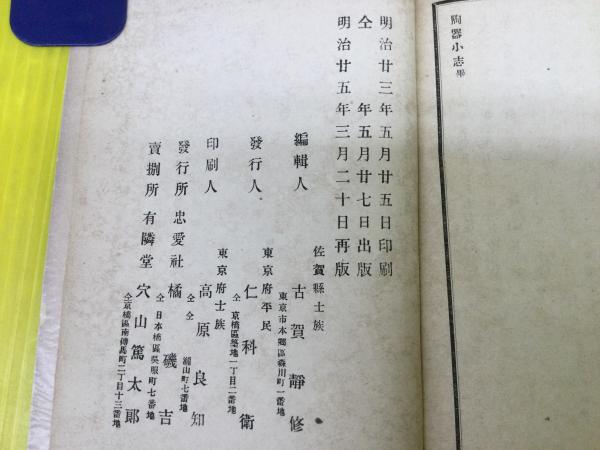 陶器小志畢
明治廿三年五月廿五日印刷
仝 年五月廿七日出版
明治廿五年三月二十日再版
佐賀縣士族
編輯人 古賀靜修
東京市本郷區森川町一番地
東京府平民
發行人 仁科衛
仝 京橋區築地一丁目二番地
東京府士族
印刷人 高原良知
仝 仝 町七番地
發行所 忠愛社 橘磯吉
仝 日本橋區呉服町七番地
賣捌所 有隣堂 穴山篤太郎
仝京橋區南傳馬町二丁目十三番地